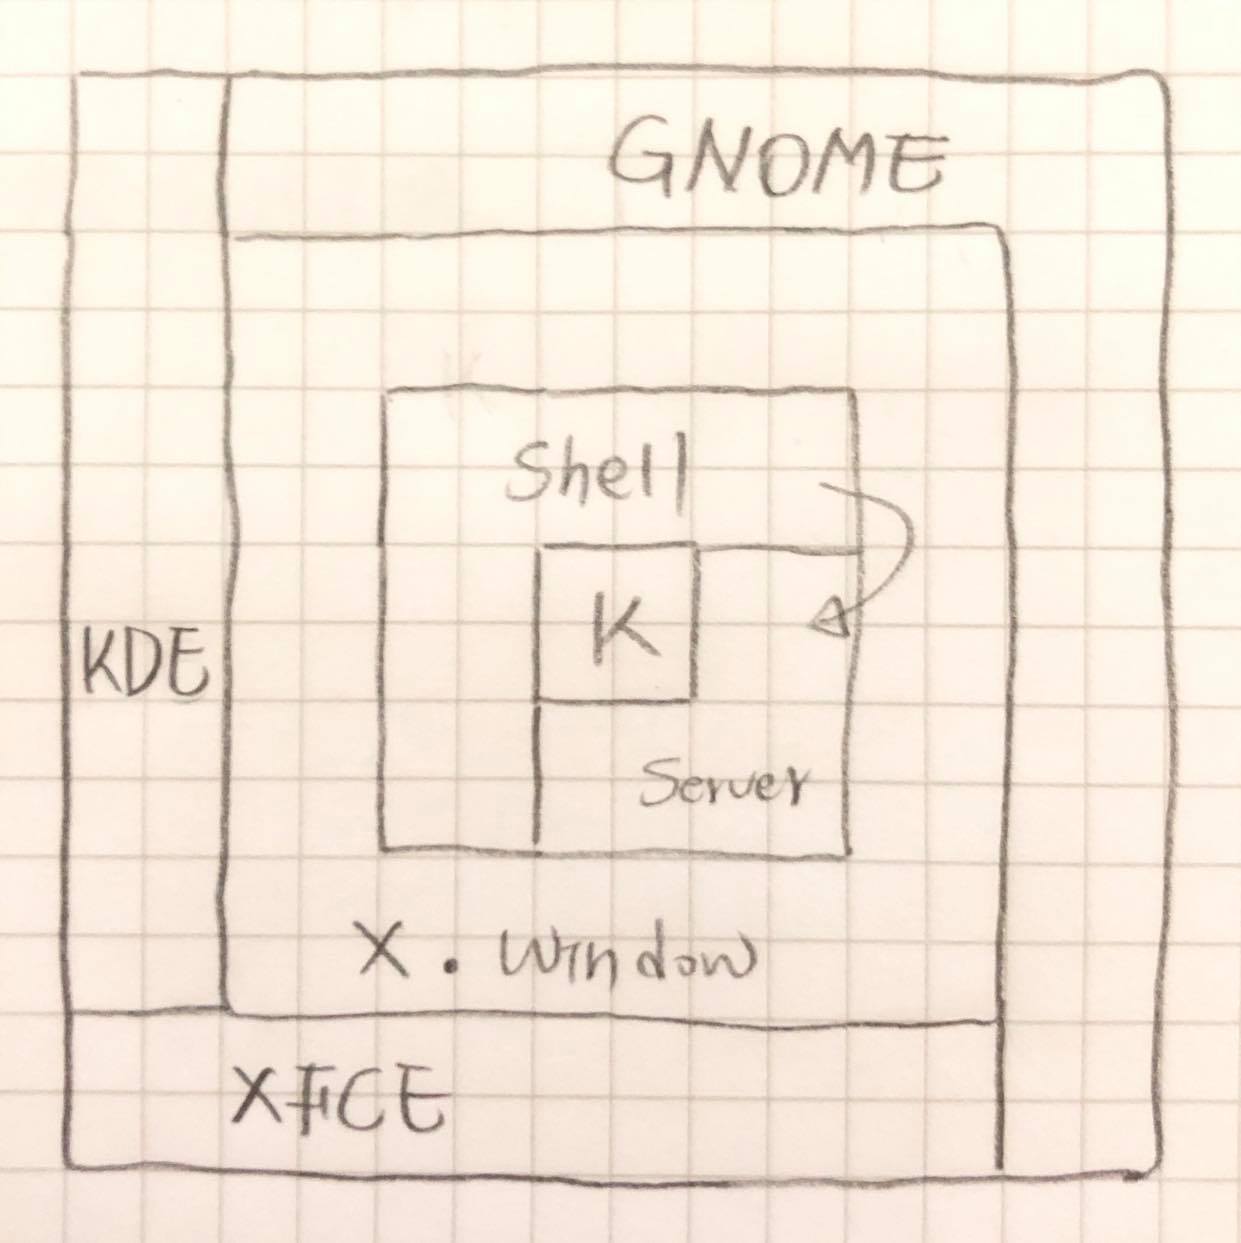 GNOME
Shell
K
KDE
Server
X. Window
XFCE